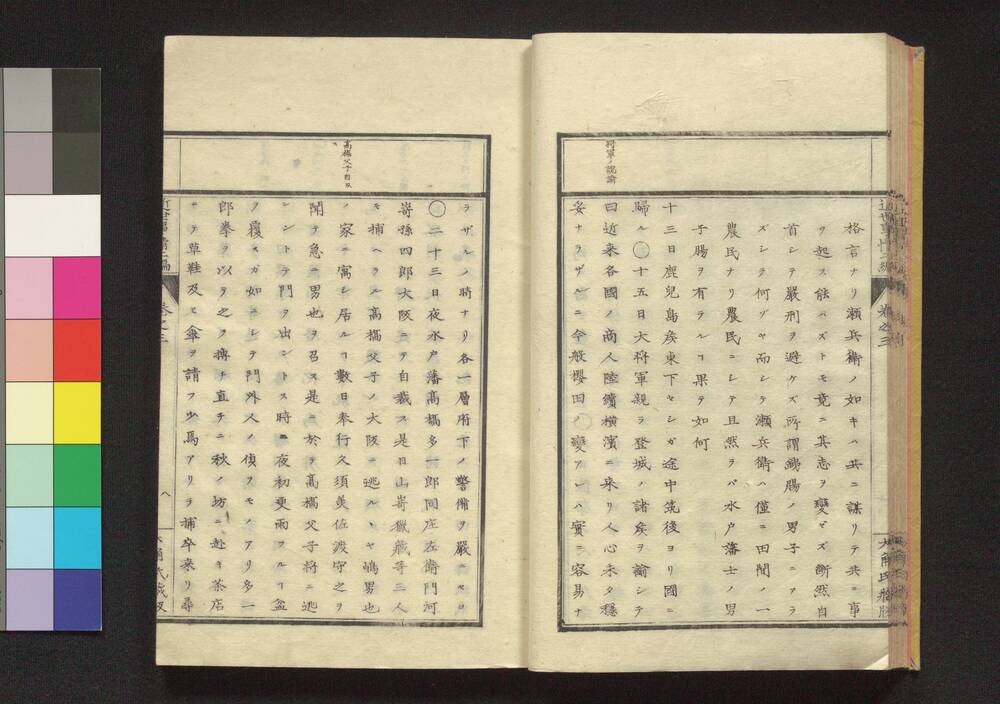 将軍ノ説諭
格言ナリ瀬兵衛ノ如キハ共ニ謀リテ共ニ事
ヲ起ス能ハズトモ竟ニ其志ヲ變セズ断然自
首シテ嚴刑ヲ避ケズ所謂鐵膓ノ男子ニアラ
ズシテ何ゾヤ而シテ瀬兵衛ハ僅ニ田間ノ一
農民ナリ農民ニシテ且然ラバ水戸藩士ノ男
子腸ヲ有テルヿ果テ如何
十三日鹿兒島侯東下セシガ途中筑後ヨリ國ニ
歸ル〇十五日大将軍親ラ登城ノ諸侯ヲ諭シテ
曰近来各國ノ商人陸續横濱ニ来リ人心未タ穏
妥ナラザルニ今般櫻田ノ變アレハ實ニ容易ナ
近世事情二編
巻之三
高橋父子自殺
ラザルノ時ナリ各一層府下ノ警備ヲ嚴ニセヨ
〇二十三日夜水戸藩髙橋多一郎同庄左衛門河
嵜孫四郎大阪ニテ自裁ス是日山嵜獵藏等三人
モ捕ヘラル髙橋父子ノ大阪ニ逃ルヽヤ嶋男也
ノ家ニ寓シ居ルヿ數日奉行久須美佐渡守之ヲ
聞テ急ニ男也ヲ召ス是ニ於テ髙橋父子将ニ逃
ントシテ門ヲ出ントス時ニ夜初更雨フルヿ盆
ヲ覆スガ如ニシテ門外人ノ偵フモノアリ多一
郎拳ヲ以テ之ヲ搏チ直チニ秋ノ坊ニ赴キ茶店
ニテ草鞋及ヒ傘ヲ請フ少焉アリテ捕卒来リ尋
八